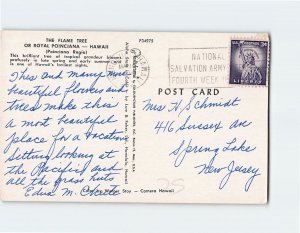 THE FLAME TREE
OR ROYAL POINCIANA — HAWAII
(Poinciana Regia)
This brilliant tree of tropical grandeur blooms
profusely in late spring and early summer and
is one of Hawaii's loveliest sights.
This and many more
beautiful flowers and
trees make this
a most beautiful
place for a vacation
Sitting looking at
the Pacific and
all the grass huts
Edna M.
P04975
NATIONAL
SALVATION ARMY
FOURTH WEEK
POST CARD
Mrs H Schmidt
416 Sussex Ave
Spring Lake
New Jersey
Stay — Camera Hawaii